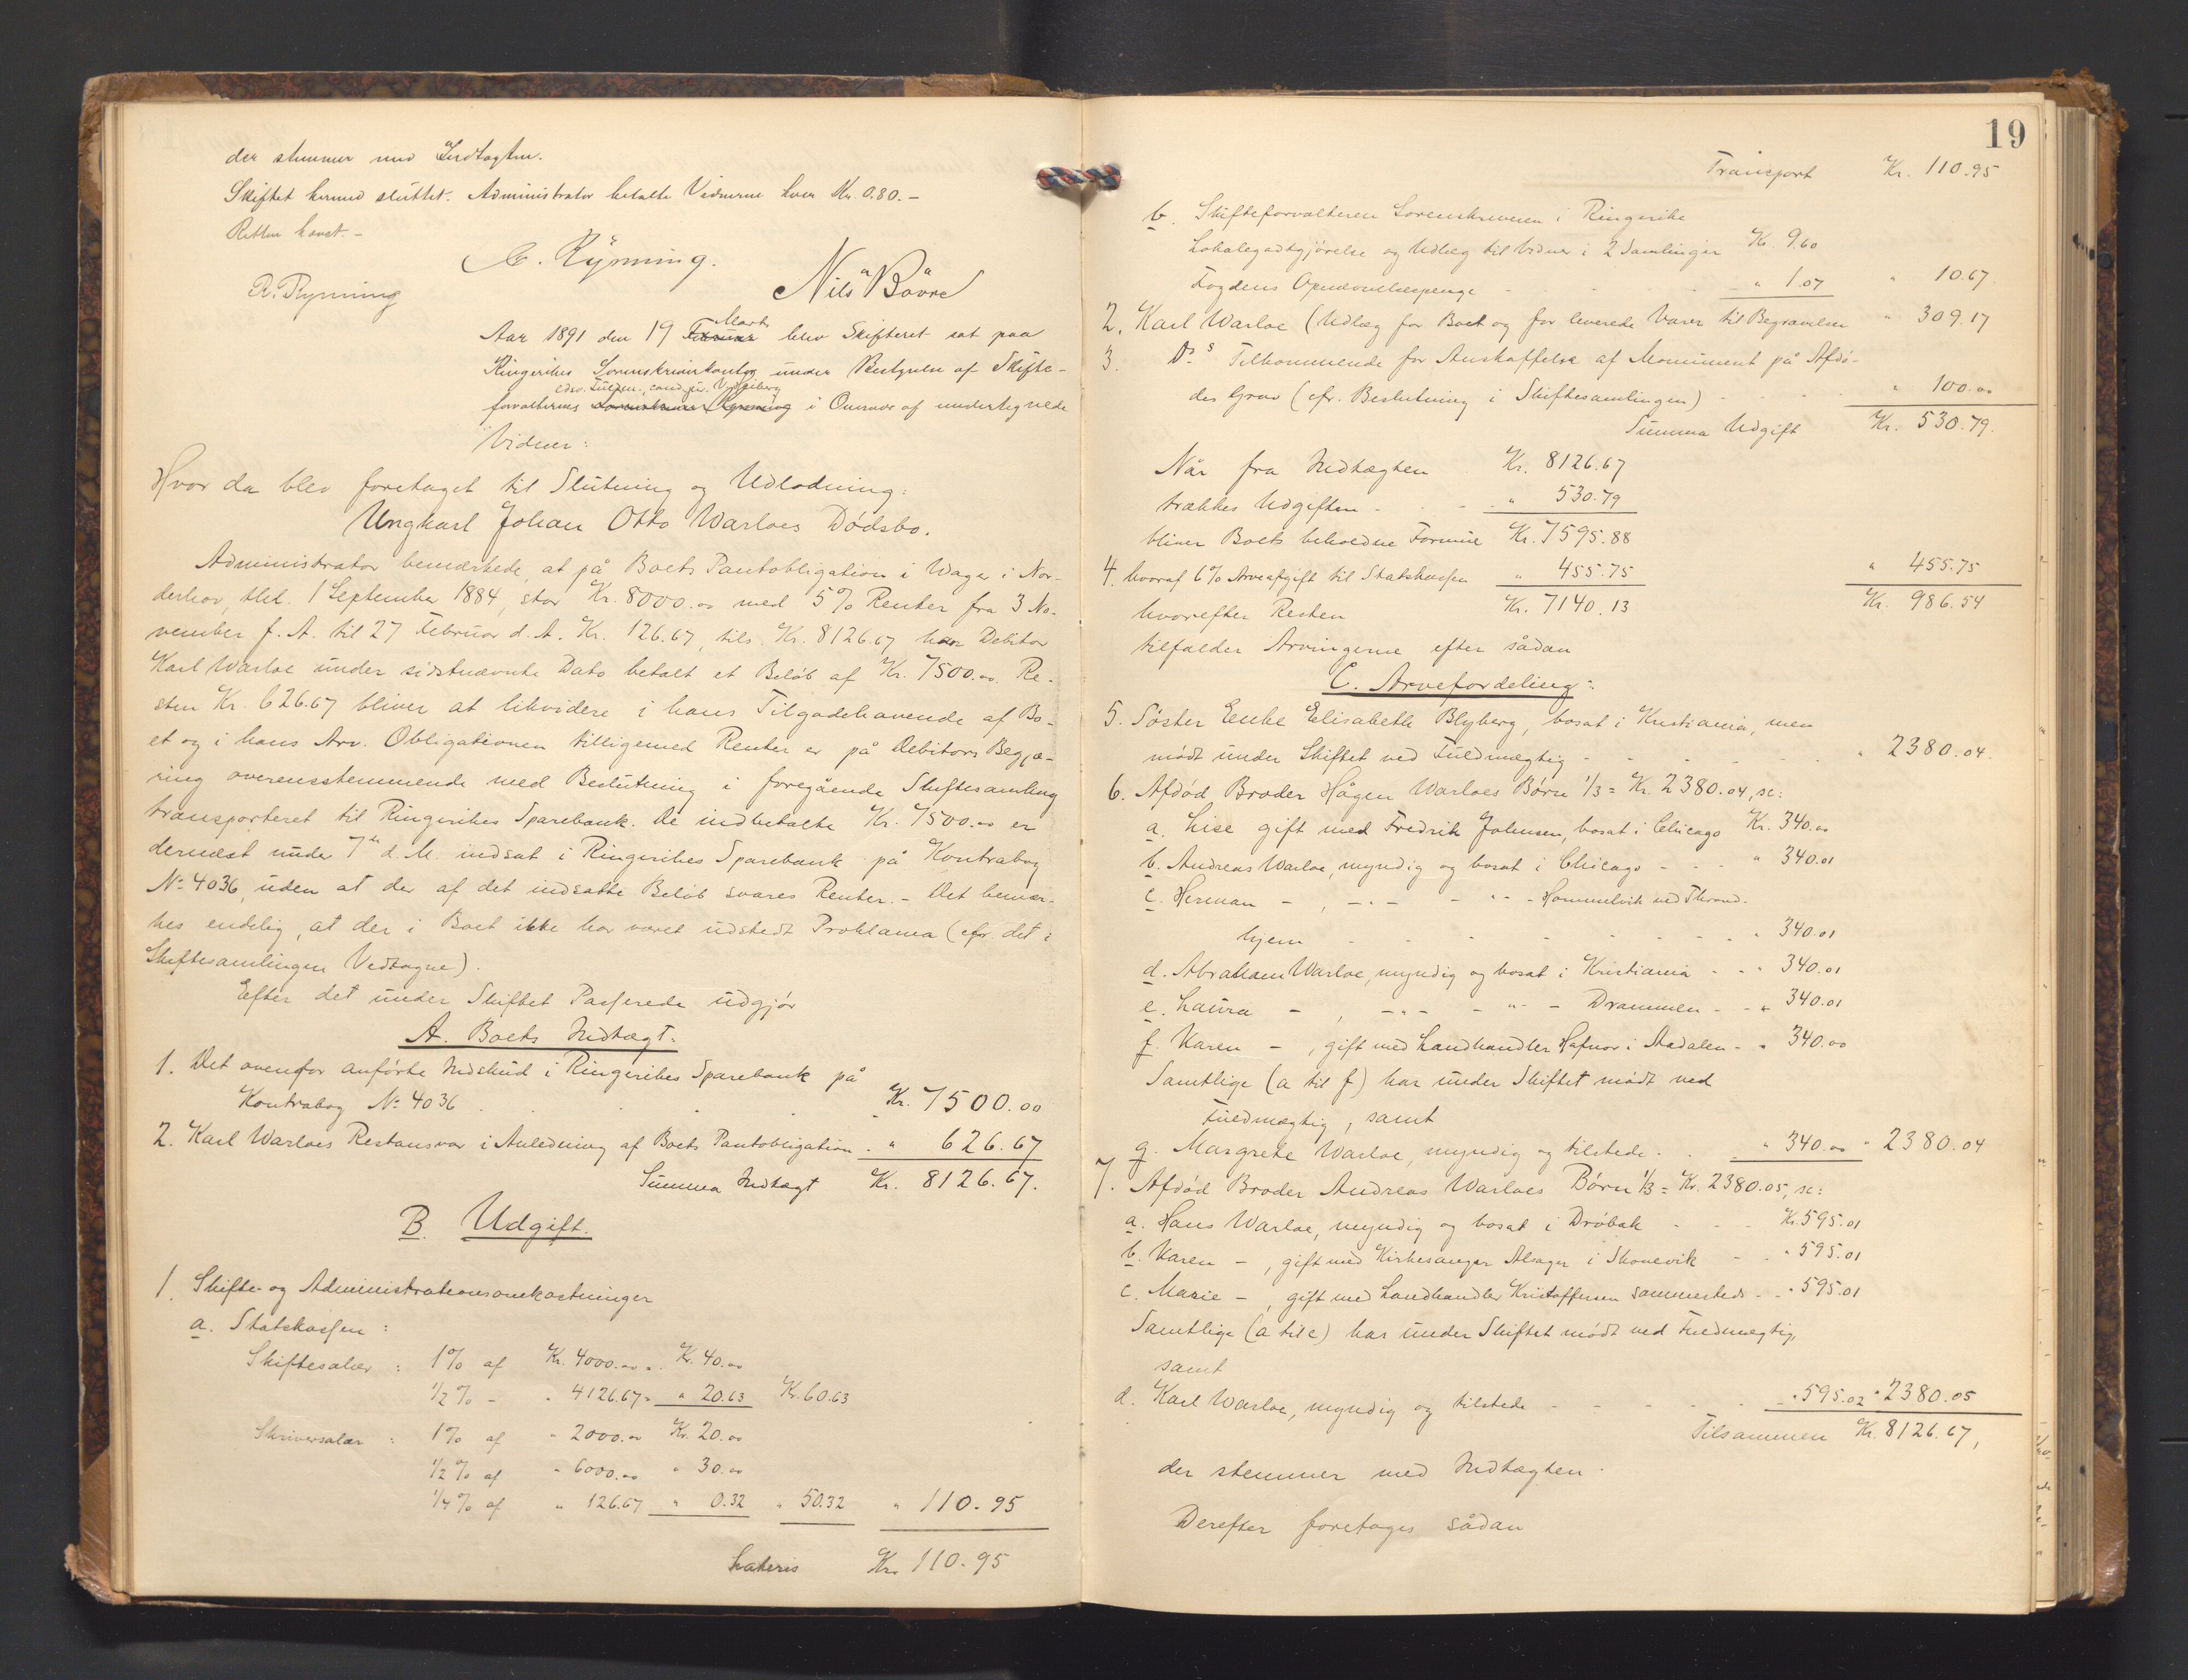 der stemmer med Indtægten.
Skiftet hermed sluttet. Administrator betalte Vidnerne hver Kr. 0.80. –
Retten hævet. –
C. Rynning.
R. Rynning
Nils Båvre
Aar 1891 den 19 Februar Marts blev Skifteret sat paa
Ringerikes Sorenskriverkontor under Bestyrelse af Skifte-
edsv. Fuldm., cand. jur.
forvalterens Sorenskriver Rynning i Overvær af undertegnede
Vidner:
Hvor da blev foretaget til Slutning og Udlodning:
Ungkarl Johan Otto Warloes Dødsbo.
Administrator bemærkede, at på Boets Pantobligation i Wager i Nor-
derhov, dat. 1 September 1884, stor Kr. 8000.00 med 5% Renter fra 3 No-
vember f. A. til 27 Februar d. A. Kr. 126.67, tils. Kr. 8126.67 har Debitor
Karl Warloe under sidstnævnte Dato betalt et Beløb af Kr. 7500.00. Re-
sten Kr. 626.67 bliver at likvidere i hans Tilgodehavende af Bo-
et og i hans Arv. Obligationen tilligemed Renter er på Debitors Begjæ-
ring overensstemmende med Beslutning i foregående Skiftesamling
transporteret til Ringerikes Sparebank. De indbetalte Kr. 7500.00 er
dernæst under 7de d. M. indsat i Ringerikes Sparebank på Kontrabog
No 4036, uden at der af det indsatte Beløb svares Renter. – Det bemær-
kes endelig, at der i Boet ikke har været udstedt Proklama (cfr. det i
Skiftesamlingen Vedtagne).
Efter det under Skiftet Passerede udgjør
A. Boets Indtægt:
1. Det ovenfor anførte Indskud i Ringerikes Sparebank på
Kontrabog No 4036 . . . . Kr. 7500.00
2. Karl Warloes Restansvar i Anledning af Boets Pantobligation . " 626.67
Summa Indtægt Kr. 8126.67.
B. Udgift.
1. Skifte- og Administrationsomkostninger
a. Statskassen :
Skiftesalær : 1% af Kr. 4000.00 = Kr. 40.00
1/2% – " 4126.67 = " 20.63 Kr. 60.63
Skriversalær : 1% af " 2000.00 Kr. 20.00
1/2% af " 6000.00 " 30.00
1/4% af " 126.67 " 0.32 " 50.32 " 110.95
Lateris Kr. 110.95
19
Transport Kr. 110.95
b. Skifteforvalteren Sorenskriveren i Ringerike
Lokalegodtgjørelse og Udlæg til Vidner i 2 Samlinger Kr. 9.60
Fogdens Opkrævelsespenge - - - - " 1.07 " 10.67
2. Karl Warloe (Udlæg for Boet og for leverede Varer til Begravelsen " 309.17
3. Ds s Tilkommende for Anskaffelse af Monument på Afdø-
des Grav (cfr. Beslutning i Skiftesamlingen) - - - " 100.00
Summa Udgift Kr. 530.79.
Når fra Indtægten Kr. 8126.67
trækkes Udgiften - - - " 530.79
bliver Boets beholdne Formue Kr. 7595.88
4. hvoraf 6% Arveafgift til Statskassen " 455.75 " 455.75
hvorefter Resten Kr. 7140.13 Kr. 986.54
tilfalder Arvingerne efter sådan
C. Arvefordeling:
5. Søster Enke Elisabeth Blyberg, bosat i Kristiania, men
mødt under Skiftet ved Fuldmægtig - - - - - " 2380.04.
6. Afdød Broder Hågen Warloes Børn 1/3 = Kr. 2380.04, sc:
a. Lise gift med Fredrik Johnsen, bosat i Chicago Kr. 340.00
b. Andreas Warloe, myndig og bosat i Chicago - - " 340.01
c. Herman – , – " – – " – – Hommelvik ved Thrond-
hjem - - - - - - - " 340.01
d. Abraham Warloe, myndig og bosat i Kristiania - - " 340.01
e. Laura – , – " – – " – – Drammen - - " 340.01
f. Karen – , gift med Landhandler Hafnor i Aadalen - " 340.00
Samtlige (a til f) har under Skiftet mødt ved
Fuldmægtig, samt
g. Margrete Warloe, myndig og tilstede - - " 340.00 " 2380.04
7. Afdød Broder Andreas Warloes Børn 1/3 = Kr. 2380.05, sc:
a. Hans Warloe, myndig og bosat i Drøbak - - - Kr. 595.01
b. Karen – , gift med Kirkesanger Alsager i Skonevik - - " 595.01
c. Marie – , gift med Landhandler Kristoffersen sammesteds - " 595.01
Samtlige (a til c) har under Skiftet mødt ved Fuldmægtig,
samt
d. Karl Warloe, myndig og tilstede - - - - - " 595.02 " 2380.05
Tilsammen Kr. 8126.67,
der stemmer med Indtægten.
Derefter foretages sådan